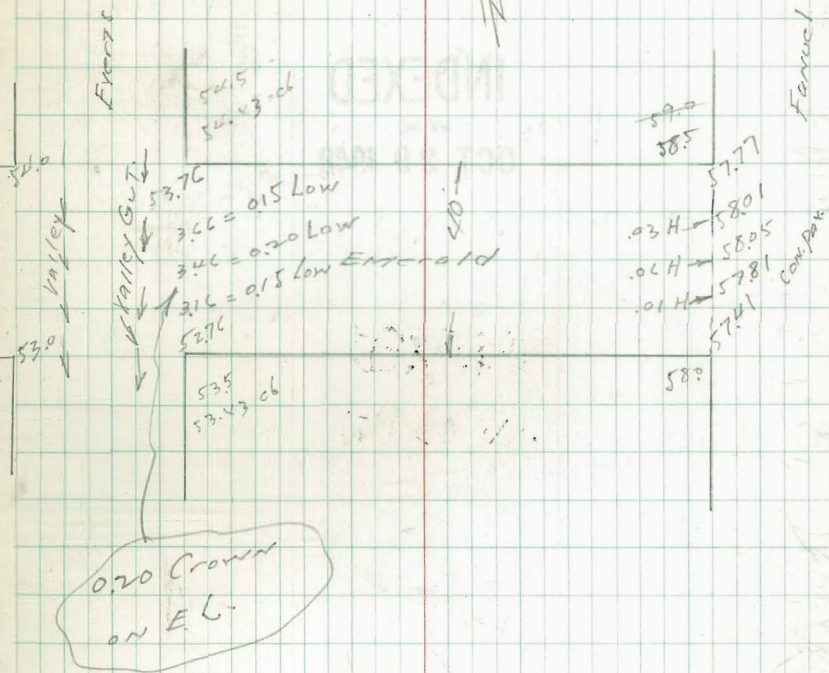 Everts
Fanuel
54.5
54.43 cb
59.0
58.5
54.0
53.76
57.77
Valley
Valley Gut.
3.66 = 0.15 Low
3.46 = 0.20 Low
3.16 = 0.15 Low Emerald
40'
.03 H 58.01
.06 H 58.05
.01 H 57.81
57.41
53.0
52.76
53.5
53.43 cb
58.0
0.20 Crown
on E L.
INDEXED
OCT 20 1948